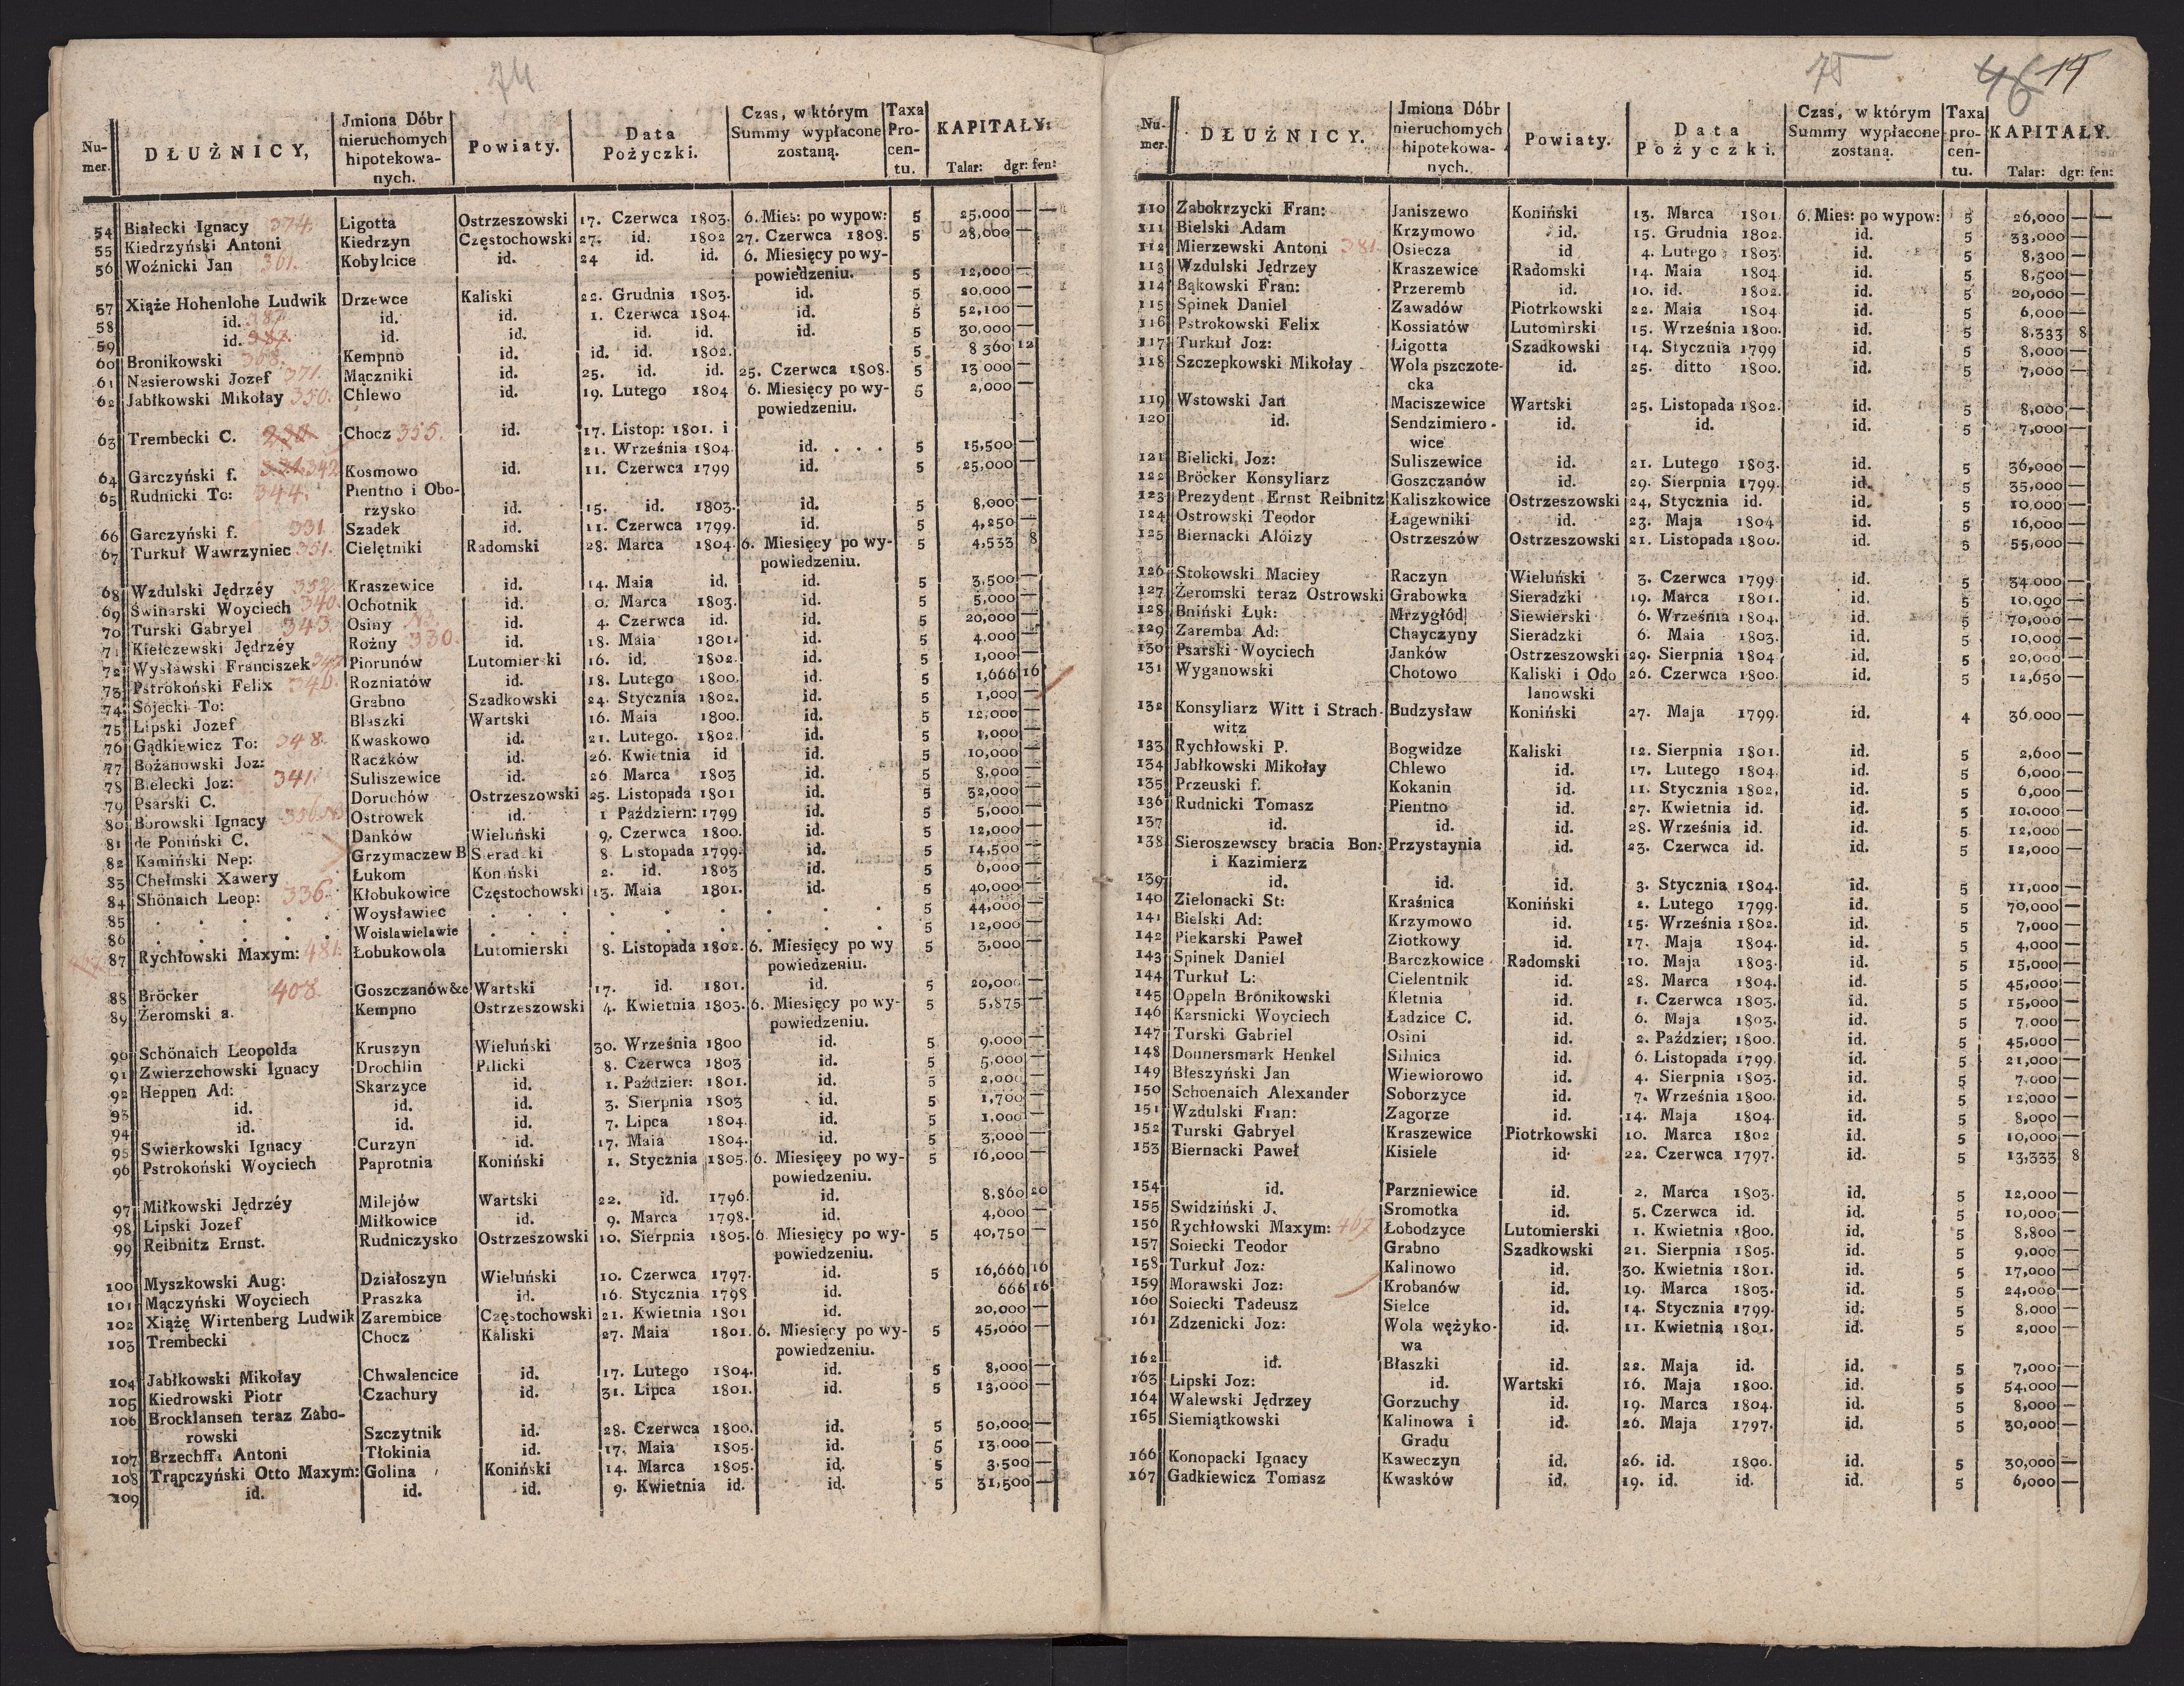 74
Nu-mer. DŁUŻNICY, Jmiona Dóbr nieruchomych hipotekowa-nych. Powiaty. Data Pożyczki. Czas, w którym Summy wypłacone zostaną. Taxa Pro-cen-tu. KAPITAŁY: Talar: dgr: fen:
54 Białecki Ignacy 374. Ligotta Ostrzeszowski 17. Czerwca 1803. 6. Mies: po wypow: 5 25,000 — —
55 Kiedrzyński Antoni Kiedrzyn Częstochowski 27. id. 1802 27. Czerwca 1808. 5 28,000 —
56 Woźnicki Jan 361. Kobylcice id. 24 id. id. 6. Miesięcy po wy-
powiedzeniu. 5 12,000 —
57 Xiąże Hohenlohe Ludwik Drzewce Kaliski 22. Grudnia 1803. id. 5 20,000 —
58 id. id. id. 1. Czerwca 1804. id. 5 52,100 —
59 id. id. id. id. id. id. 5 30,000 —
60 Bronikowski Kempno id. id. id. 1802. 5 8 360 12
61 Nasierowski Jozef 371. Mączniki id. 25. id. id. 25. Czerwca 1808. 5 13 000 —
62 Jabłkowski Mikołay 350. Chlewo id. 19. Lutego 1804 6. Miesięcy po wy- 5 2,000 —
powiedzeniu.
63 Trembecki C. Chocz 355. id. 17. Listop: 1801. i
21. Września 1804 id. . . . 5 15,500 —
64 Garczyński f. 342 Kosmowo id. 11. Czerwca 1799 id. 5 25,000 —
65 Rudnicki To: 344. Pientno i Obo-
rzysko id. 15. id. 1803. id. 5 8,000 —
66 Garczyński f. 331 Szadek id. 11. Czerwca 1799. id. 5 4,250 —
67 Turkuł Wawrzyniec 351. Cielętniki Radomski 28. Marca 1804. 6. Miesięcy po wy- 5 4,533 8
powiedzeniu.
68 Wzdulski Jędrzéy 352 Kraszewice id. 14. Maia id. id. 5 3,500 —
69 Swinarski Woyciech 340. Ochotnik id. 0. Marca 1803. id. 5 5,000 —
70 Turski Gabryel 343. Osiny id. 4. Czerwca id. id. 5 20,000 —
71 Kiełczewski Jędrzéy Rożny 330. id. 18. Maia 1801. id. 5 4,000 —
72 Wysławski Franciszek Piorunów Lutomierski 16. id. 1802. id. 5 1,000 —
73 Pstrokoński Felix 346. Rozniatów id. 18. Lutego 1800. id. 5 1,666 16
74 Sójecki To: Grabno Szadkowski 24. Stycznia 1802. id. 5 1,000 —
75 Lipski Jozef Błaszki Wartski 16. Maia 1800. id. 5 12,000 —
76 Gądkiewicz To: 348. Kwaskowo id. 21. Lutego. 1802. id. 5 1,000 —
77 Bożanowski Joz: Raczków id. 26. Kwietnia id id. 5 10,000 —
78 Bielecki Joz: 341. Suliszewice id. 26 Marca 1803 id. 5 8,000 —
79 Psarski C. Doruchów Ostrzeszowski 25. Listopada 1801 id. 5 32,000 —
80 Borowski Ignacy Ostrowek id. 1 Październ: 1799 id. 5 5,000 —
81 de Poniński C. Danków Wieluński 9. Czerwca 1800. id. 5 12,000 —
82 Kamiński Nep: Grzymaczew B Sieradzki 8 Listopada 1799. id. 5 14,500 —
83 Chełmski Xawery Łukom Koniński 2. id. 1803 id. 5 6,000 —
84 Shönaich Leop: 336. Kłobukowice Częstochowski 13. Maia 1801. id. 5 40,000 —
85 . . . . Woysławiec . . . . . . . . 5 44,000 —
86 . . . . Woislawielawie . . . . . . . . 5 12,000 —
87 Rychłowski Maxym: 481. Łobukowola Lutomierski 8. Listopada 1802. 6. Miesięcy po wy 5 3,000 —
powiedzeniu.
88 Bröcker 408. Goszczanów&c Wartski 17. id. 1801. id. 5 20,000 —
89 Żeromski a. Kempno Ostrzeszowski 4. Kwietnia 1803. 6. Miesięcy po wy- 5 5,875 —
powiedzeniu.
90 Schönaich Leopolda Kruszyn Wieluński 30. Września 1800 id. 5 9,000 —
91 Zwierzchowski Ignacy Drochlin Pilicki 8. Czerwca 1803 id. 5 5,000 —
92 Heppen Ad: Skarzyce id. 1. Paździer: 1801. id. 5 2,000 —
93 id. id. id. 3. Sierpnia 1803 id. 5 1,700 —
94 id. id. id. 7. Lipca 1804. id. 5 1,000 —
95 Swierkowski Ignacy Curzyn id. 17. Maia 1804. id. 5 3,000 —
96 Pstrokoński Woyciech Paprotnia Koniński 1. Stycznia 1805. 6. Miesięey po wy- 5 16,000 —
powiedzeniu.
97 Miłkowski Jędrzéy Milejów Wartski 22. id. 1796. id. 8,860 20
98 Lipski Jozef Miłkowice id. 9. Marca 1798. id. 4,000 —
99 Reibnitz Ernst. Rudniczysko Ostrzeszowski 10. Sierpnia 1805. 6. Miesięcy po wy- 5 40,750 —
powiedzeniu.
100 Myszkowski Aug: Działoszyn Wieluński 10. Czerwca 1797. id. 5 16,666 16
101 Mączyński Woyciech Praszka id. 16. Stycznia 1798 id. 666 16
102 Xiążę Wirtenberg Ludwik Zarembice Częstochowski 21. Kwietnia 1801 id. 20,000 —
103 Trembecki Chocz Kaliski 27. Maia 1801. 6. Miesięcy po wy- 5 45,000 —
powiedzeniu.
104 Jabłkowski Mikołay Chwalencice id. 17. Lutego 1804. id. 5 8,000 —
105 Kiedrowski Piotr Czachury id. 31. Lipca 1801. id. 5 13,000 —
106 Brocklansen teraz Zabo-
rowski Szczytnik id. 28. Czerwca 1800. id. 5 50,000 —
107 Brzechffa Antoni Tłokinia id. 17. Maia 1805. id. 5 13,000 —
108 Trąpczyński Otto Maxym: Golina Koniński 14. Marca 1805. id. 5 3,500 —
109 id. id. id. 9. Kwietnia id. id. 5 31,500 —
75 46 15
Nu-mer. DŁUŻNICY. Jmiona Dóbr nieruchomych hipotekowa-nych. Powiaty. Data Pożyczki. Czas, w którym Summy wypłacone zostaną. Taxa pro-cen-tu. KAPITAŁY. Talar: dgr: fen:
110 Zabokrzycki Fran: Janiszewo Koniński 13. Marca 1801. 6. Mies: po wypow: 5 26,000 — —
111 Bielski Adam Krzymowo id. 15. Grudnia 1802. id. 5 33,000 —
112 Mierzewski Antoni 381. Osiecza id 4. Lutego 1803. id. 5 8,300 —
113 Wzdulski Jędrzey Kraszewice Radomski 14. Maia 1804. id. 5 8,500 —
114 Bąkowski Fran: Przeremb id. 10. id. 1802. id. 5 20,000 —
115 Spinek Daniel Zawadów Piotrkowski 22. Maia 1804 id. 5 6,000 —
116 Pstrokowski Felix Kossiatów Lutomirski 15. Września 1800. id. 5 8,333 8
117 Turkuł Joz: Ligotta Szadkowski 14. Stycznia 1799 id. 5 8,000 —
118 Szczepkowski Mikołay Wola pszczote- id. 25. ditto 1800. id. 5 7,000 —
cka
119 Wstowski Jan Maciszewice Wartski 25. Listopada 1802. id. 5 8,000 —
120 id. Sendzimiero- id. id. id. 5 7,000 —
wice
121 Bielicki Joz: Suliszewice id. 21. Lutego 1803. id. 5 36,000 —
122 Bröcker Konsyliarz Goszczanów id. 29. Sierpnia 1799. id. 5 35,000 —
123 Prezydent Ernst Reibnitz Kaliszkowice Ostrzeszowski 24, Stycznia id. id. 5 10,000 —
124 Ostrowski Teodor Łagewniki id. 23. Maja 1804 id. 5 16,000 —
125 Biernacki Aloizy Ostrzeszów Ostrzeszowski 21. Listopada 1800. id. 5 55,000 —
126 Stokowski Maciey Raczyn Wieluński 3. Czerwca 1799 id. 5 34 000 —
127 Żeromski teraz Ostrowski Grabowka Sieradzki 19. Marca 1801. id. 5 10,000 —
128 Bniński Łuk: Mrzygłód Siewierski 6. Września 1804. id. 5 70,000 —
129 Zaremba Ad: Chayczyny Sieradzki 6. Maia 1803. id. 5 10,000 —
130 Psarski Woyciech Janków Ostrzeszowski 29. Sierpnia 1804 id. 5 20,000 —
131 Wyganowski Chotowo Kaliski i Odo 26. Czerwca 1800. id. 5 12,650 —
lanowski
132 Konsyliarz Witt i Strach- Budzysław Koniński 27. Maja 1799. id. 4 36,000 —
witz
133 Rychłowski P. Bogwidze Kaliski 12. Sierpnia 1801. id. 5 2,600 —
134 Jabłkowski Mikołay Chlewo id. 17. Lutego 1804. id. 5 6,000 —
135 Przeuski f. Kokanin id. 11. Stycznia 1802, id. 5 6,000 —
136 Rudnicki Tomasz Pientno id. 27. Kwietnia id. id. 5 10,000 —
137 id. id. id. 28. Września id. id. 5 12,000 —
138 Sieroszewscy bracia Bon: Przystaynia id. 23. Czerwca id. id. 5 12,000 —
i Kazimierz
139 id. id. id. 3. Stycznia 1804. id. 5 11,000 —
140 Zielonacki St: Kraśnica Koniński 2. Lutego 1799. id. 5 70,000 —
141 Bielski Ad: Krzymowo id. 15. Września 1802. id. 5 7,000 —
142 Piekarski Paweł Ziotkowy id. 17. Maja 1804. id. 5 4,000 —
143 Spinek Daniel Barczkowice Radomski 10. Maja 1803. id. 5 15,000 —
144 Turkuł L: Cielentnik id. 28. Marca 1804. id. 5 45,000 —
145 Oppeln Bronikowski Kletnia id. 1. Czerwca 1803. id. 5 15,000 —
146 Karsnicki Woyciech Ładzice C. id. 6. Maja 1803. id. 5 7,000 —
147 Turski Gabriel Osini id. 2. Paździer; 1800. id. 5 45,000 —
148 Donnersmark Henkel Silnica id. 6. Listopada 1799. id. 5 21,000 —
149 Błeszyński Jan Wiewiorowo id. 4. Sierpnia 1803. id. 5 7,000 —
150 Schoenaich Alexander Soborzyce id. 7. Września 1800. id. 5 12,000 —
151 Wzdulski Fran: Zagorze id. 14. Maja 1804. id. 5 8,000 —
152 Turski Gabryel Kraszewice Piotrkowski 10. Marca 1802 id. 5 10,000 —
153 Biernacki Paweł Kisiele id. 22. Czerwca 1797. id. 5 13,333 8
154 id. Parzniewice id. 2. Marca 1803. id. 5 12,000 —
155 Swidziński J. Sromotka id. 5. Czerwca id. id. 5 10,000 —
156 Rychłowski Maxym: 467 Łobodzyce Lutomierski 1. Kwietnia 1800. id. 5 8,800 —
157 Soiecki Teodor Grabno Szadkowski 21. Sierpnia 1805. id. 5 9,000 —
158 Turkuł Joz: Kalinowo id. 30. Kwietnia 1801. id. 5 17,000 —
159 Morawski Joz: Krobanów id. 19. Marca 1803. id. 5 24,000 —
160 Soiecki Tadeusz Sielce id. 14. Stycznia 1799. id. 5 8,000 —
161 Zdzenicki Joz: Wola wężyko- id. 11. Kwietnia 1801. id. 5 2,000 —
wa
162 id. Błaszki id. 22. Maja id. id. 5 7,000 —
163 Lipski Joz: id. Wartski 16. Maja 1800. id. 5 54,000 —
164 Walewski Jędrzey Gorzuchy id. 19. Marca 1804. id. 5 8,000 —
165 Siemiątkowski Kalinowa i id. 26. Maja 1797. id. 5 30,000 —
Gradu
166 Konopacki Ignacy Kaweczyn id. 26. id. 1800. id. 5 30,000 —
167 Gadkiewicz Tomasz Kwasków id. 19. id. id. id. 5 6,000 —